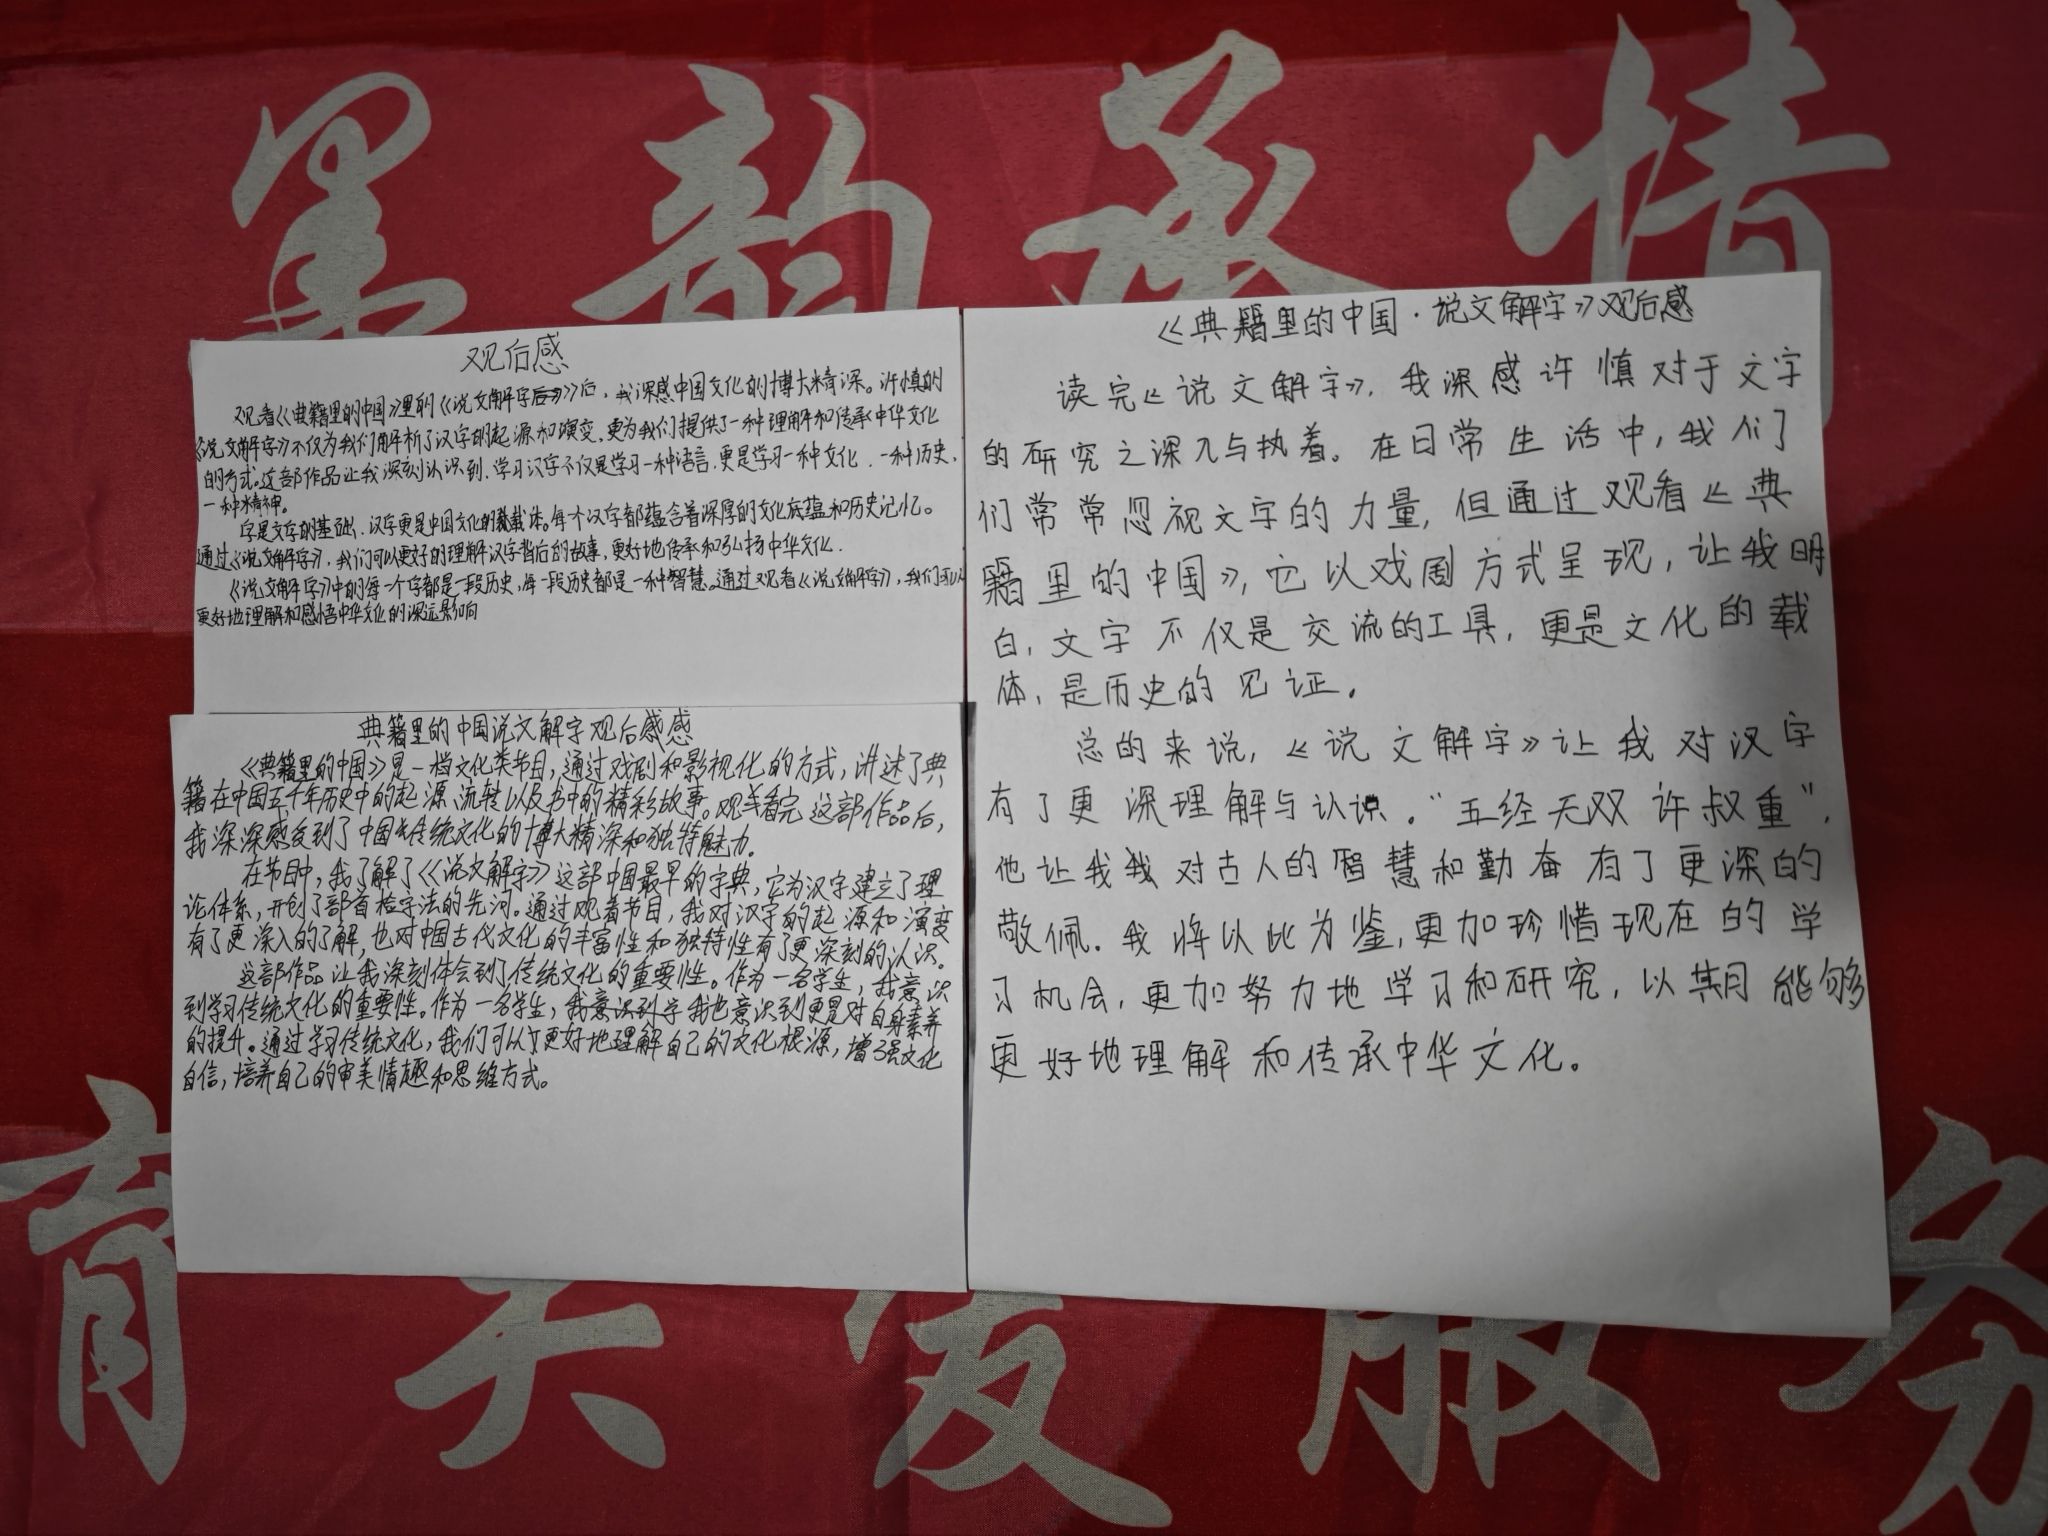 墨韵承情
观后感
观看《《典籍里的中国》里的《《说文解字后》》后，我深感中国文化的博大精深。许慎的
《说文解字》不仅为我们解析了汉字的起源和演变，更为我们提供了一种理解和传承中华文化
的方式。这部作品让我深刻认识到，学习汉字不仅是学习一种语言，更是学习一种文化，一种历史，
一种精神。
字是文字的基础，汉字更是中国文化的载体。每个汉字都蕴含着深厚的文化底蕴和历史记忆。
通过《说文解字》，我们可以更好的理解汉字背后的故事，更好地传承和弘扬中华文化.
《说文解字》中的每一个字都是一段历史，每一段历史都是一种智慧。通过观看《说文解字》，我们可以
更好地理解和感悟中华文化的深远影响
典籍里的中国说文解字观后感感
《典籍里的中国》是一档文化类节目，通过戏剧和影视化的方式，讲述了典
籍在中国五千年历史中的起源、流转以及书中的精彩故事。观看完这部作品后，
我深深感受到了中国传统文化的博大精深和独特魅力.
在节目中，我了解了《《说文解字》这部中国最早的字典，它为汉字建立了理
论体系，开创了部首检字法的先河。通过观看节目，我对汉字的起源和演变
有了更深入的了解，也对中国古代文化的丰富性和独特性有了更深刻的认识。
这部作品让我深刻体会到了传统文化的重要性。作为一名学生，我意识
到学习传统文化的重要性。作为一名学生，我意识到学我也意识到更是对自身素养
的提升。通过学习传统文化，我们可以更好地理解自己的文化根源，增强文化
自信，培养自己的审美情趣和思维方式。
《典籍里的中国·说文解字》观后感
读完《说文解字》，我深感许慎对于文字
的研究之深入与执着。在日常生活中，我们
们常常忽视文字的力量，但通过观看《典
籍里的中国》，它以戏剧方式呈现，让我明
白，文字不仅是交流的工具，更是文化的载
体，是历史的见证。
总的来说，《说文解字》让我对汉字
有了更深理解与认识。“五经无双许叔重”，
他让我我对古人的智慧和勤奋有了更深的
敬佩.我将以此为鉴，更加珍惜现在的学
习机会，更加努力地学习和研究，以期能够
更好地理解和传承中华文化。
育 爱服务